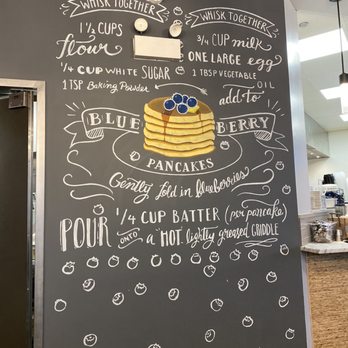 WHISK TOGETHER
1 1/2 CUPS
flour
1/4 CUP WHITE SUGAR
1 TSP Baking Powder
WHISK TOGETHER
3/4 CUP milk
ONE LARGE egg
1 TBSP VEGETABLE
OIL
add to
BLUE BERRY
PANCAKES
Gently fold in blueberries
POUR 1/4 CUP BATTER (per pancake)
ONTO a HOT, lightly greased GRIDDLE